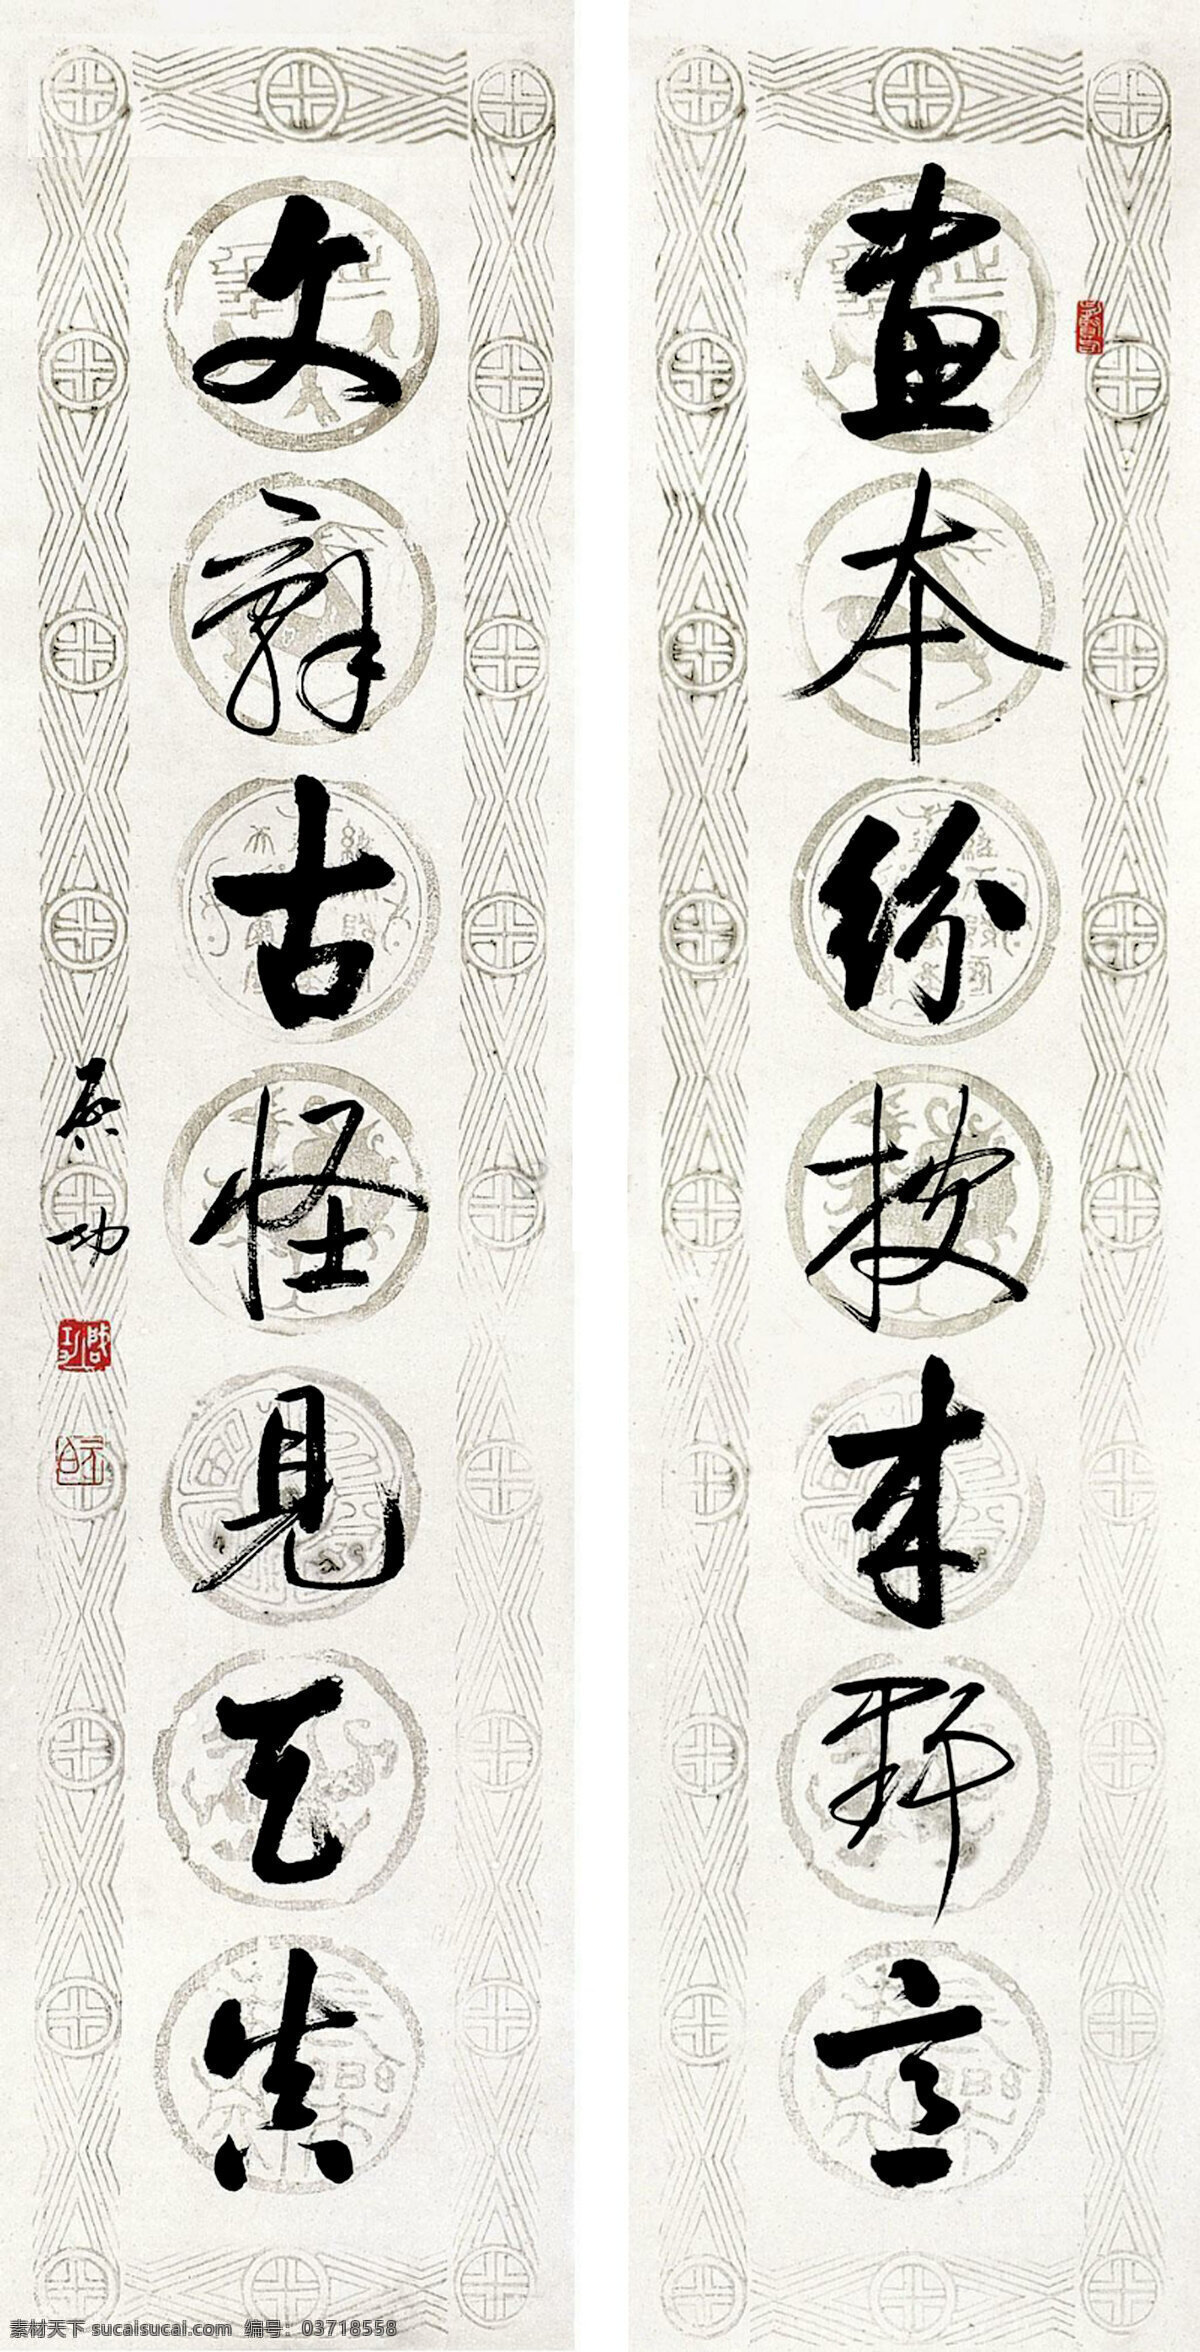 畫本紛披来野意
文辭古怪見天真
启功
啟功
元白
素材天下 sucaisucai.com 编号：03718558